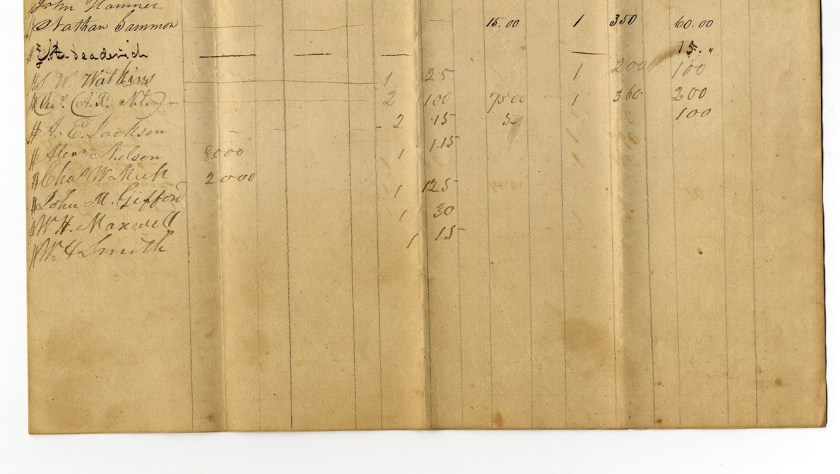 John Hamner
Nathan Sammon 15.00 1 350 60.00
15.
W. Watkins 1 25 1 200 100
2 100 7500 1 360 200
A. E. Jackson 2 15 100
Nelson 8000 1 1.15
Chas W. 20000
John M. Gifford 1 125
W. H. Maxwell 1 30
W. H. Smith 1 15